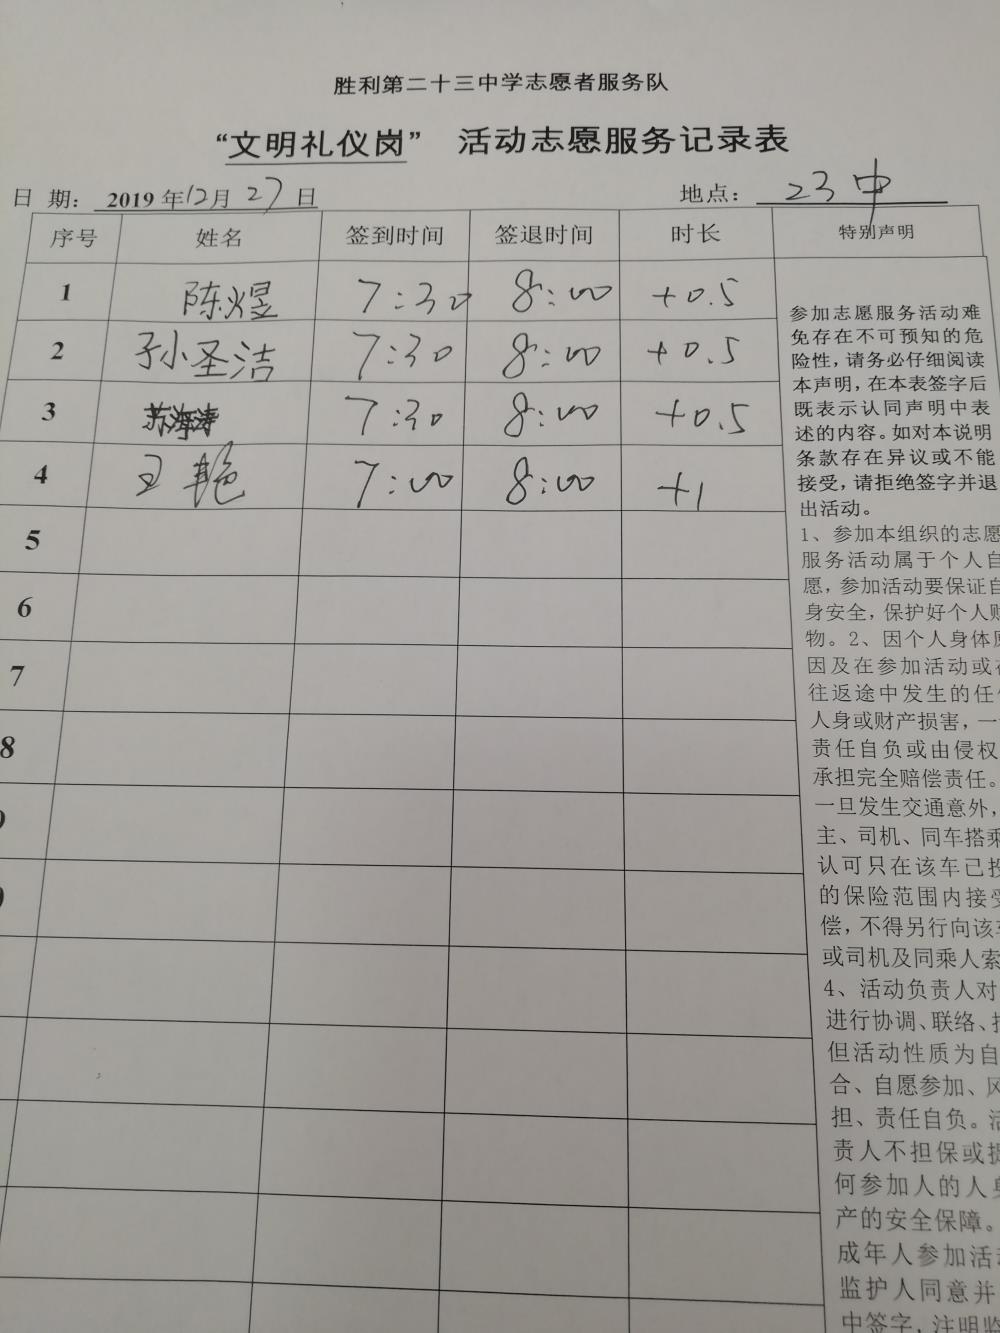 胜利第二十三中学志愿者服务队
“文明礼仪岗” 活动志愿服务记录表
日 期： 2019年12月27日 地点： 23中
序号 姓名 签到时间 签退时间 时长 特别声明
1 陈煜 7:30 8:00 +0.5
2 孙圣洁 7:30 8:00 +0.5
3 苏海涛 7:30 8:00 +0.5
4 王艳 7:00 8:00 +1
5
6
7
8
参加志愿服务活动难
免存在不可预知的危
险性，请务必仔细阅读
本声明，在本表签字后
既表示认同声明中表
述的内容。如对本说明
条款存在异议或不能
接受，请拒绝签字并退
出活动。
1、参加本组织的志愿
服务活动属于个人自
愿，参加活动要保证自
身安全，保护好个人财
物。2、因个人身体原
因及在参加活动或在
往返途中发生的任何
人身或财产损害，一
责任自负或由侵权
承担完全赔偿责任。
一旦发生交通意外，
主、司机、同车搭乘
认可只在该车已投
的保险范围内接受
偿，不得另行向该车
或司机及同乘人索
4、活动负责人对
进行协调、联络、
但活动性质为自
合、自愿参加、风
担、责任自负。活
责人不担保或提
何参加人的人身
产的安全保障。
成年人参加活动
监护人同意并
中签字，注明监